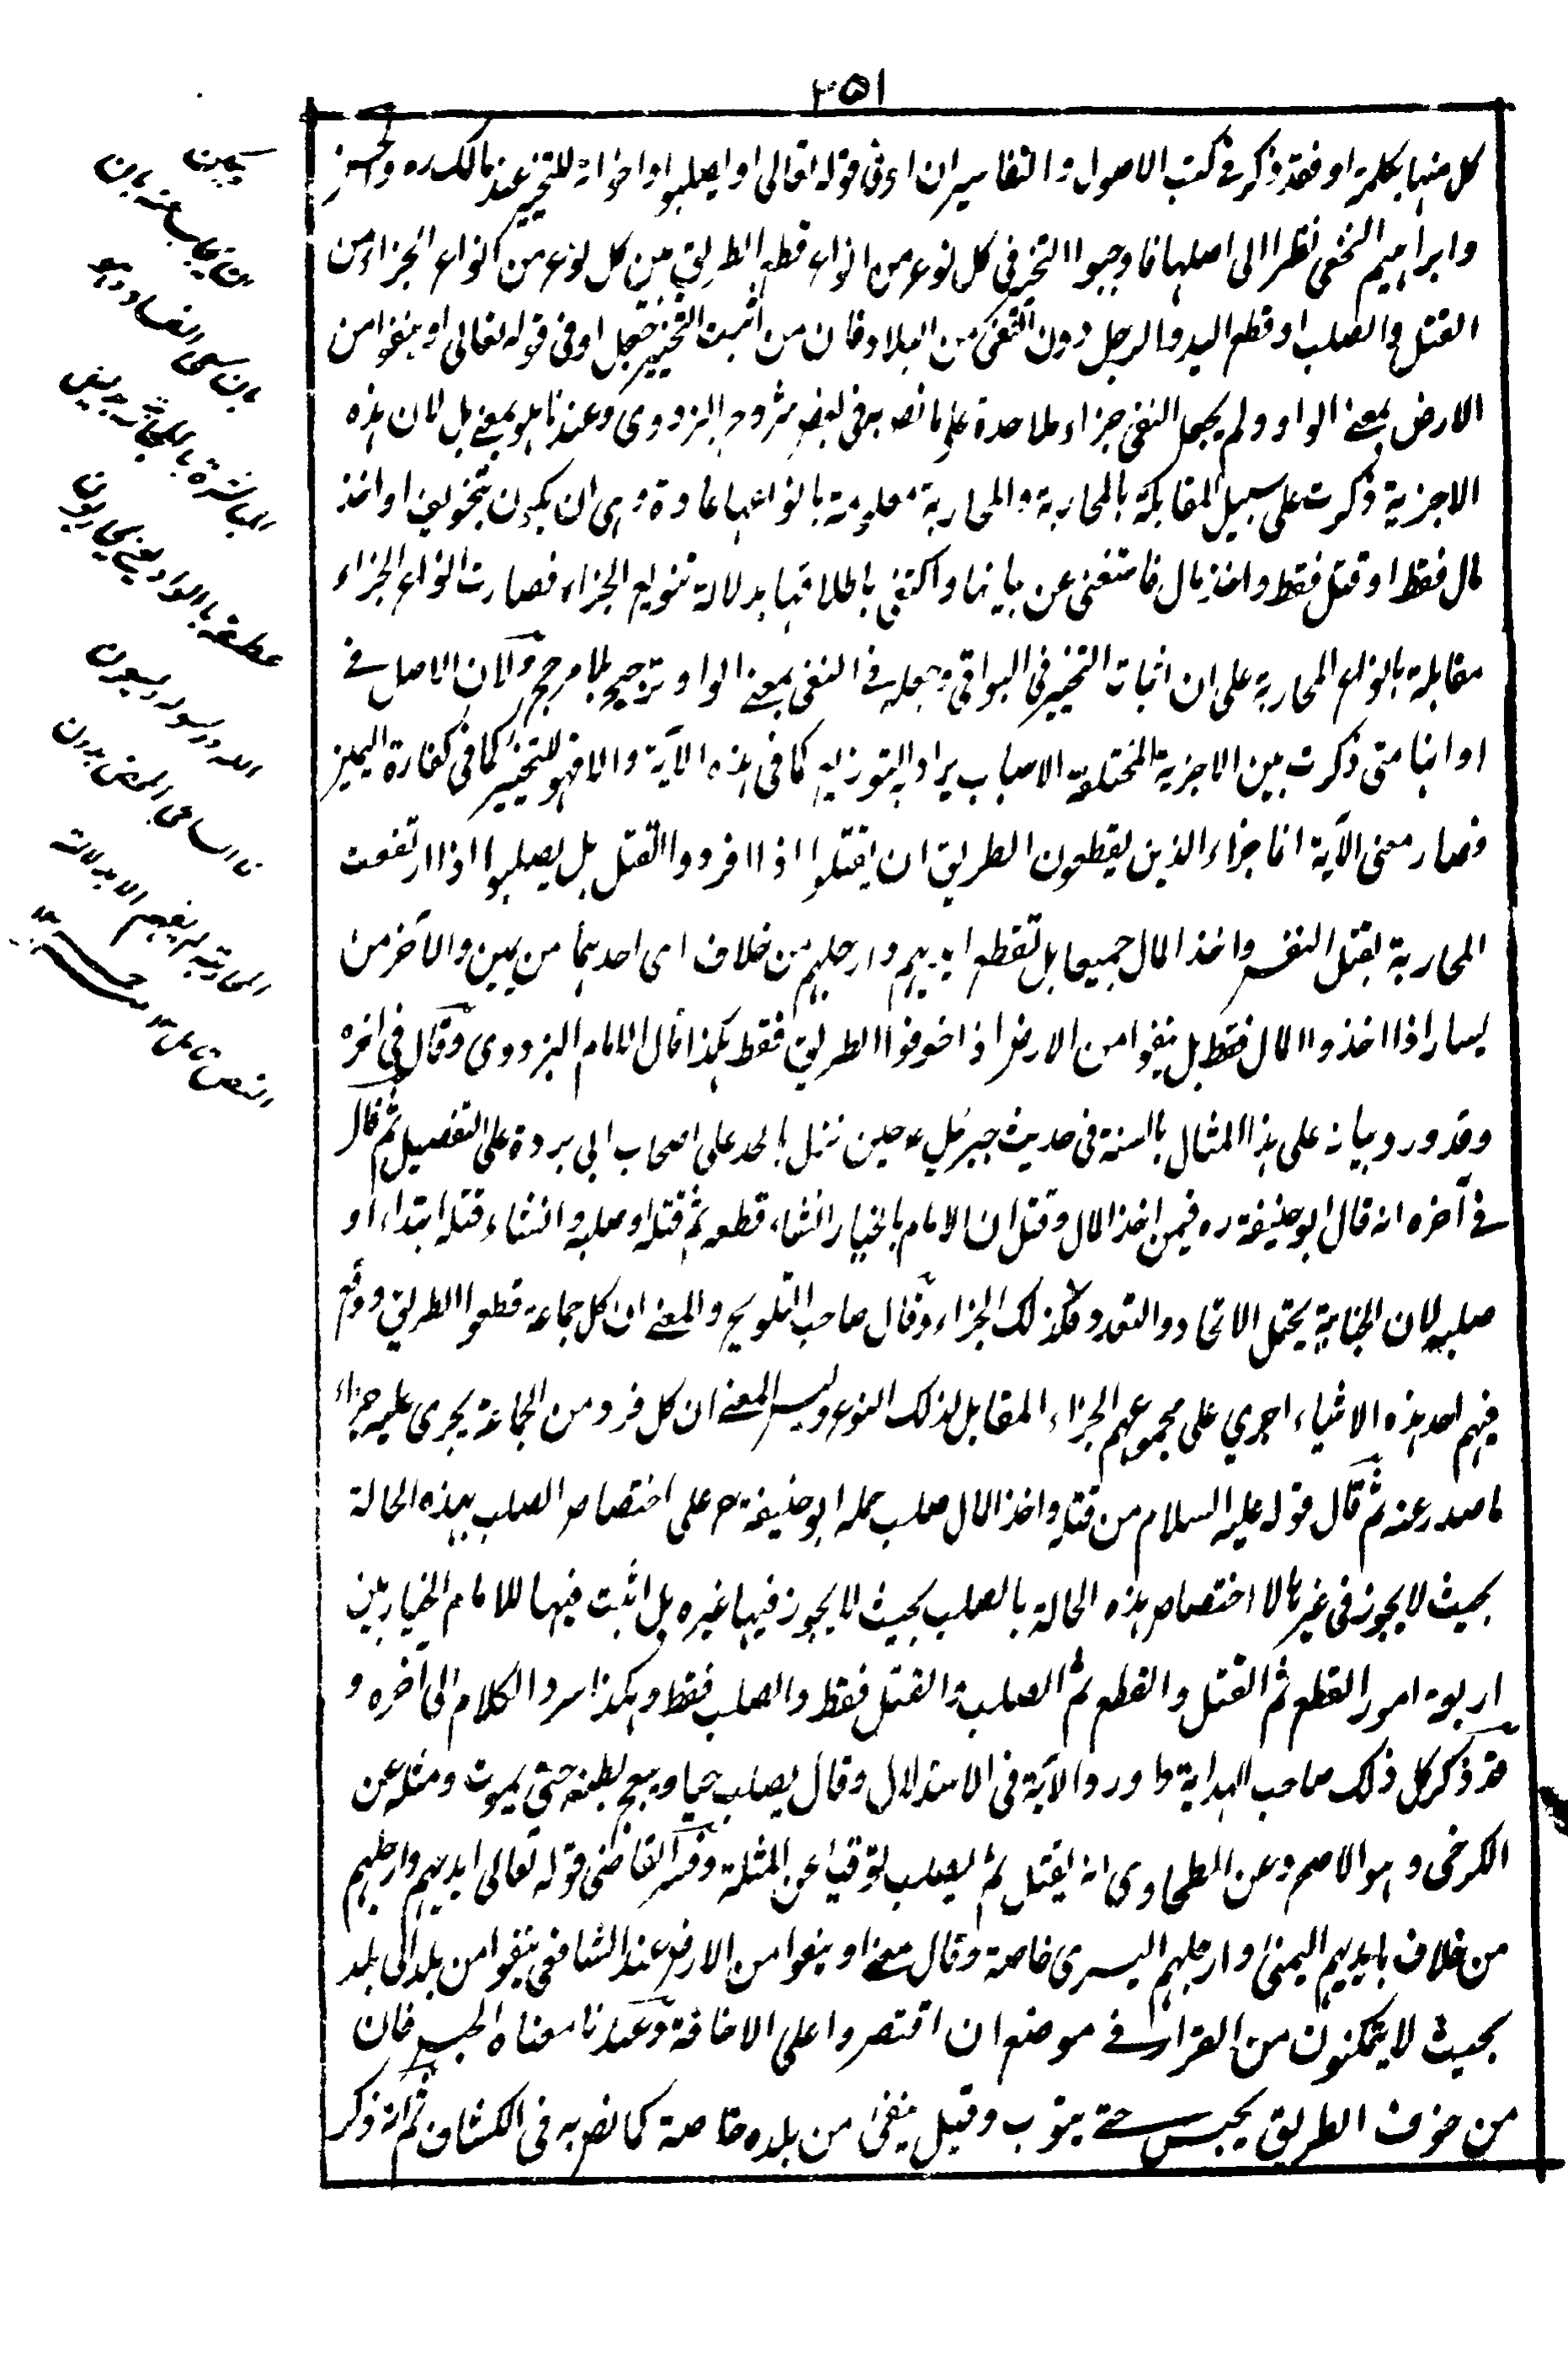 ٣٥١
كل منها بكلمة او فقد ذكر فى كتب الاصول والتفاسير ان او فى قوله تعالى او يصلبوا واخواته للتخيير عند مالك ره والحسن
وابراهيم النخعى نظرا الى اصلها فاوجبوا التخير فى كل نوع من انواع قطع الطريق من كل نوع من انواع الجزاء من
القتل والصلب او قطع اليد والرجل دون النفى من البلاد فان من اثبت التخيير جعل او فى قوله تعالى او ينفوا من
الارض بمعنے الواو ولم يجعل النفى جزاء علىحدة على ما نص به فى بعض شروح البزدوى وعندنا هو بمعنے بل لان هذه
الاجزية ذكرت على سبيل المقابلة بالمحاربة والمحاربة معلومة بانواعها عادة وهى ان يكون بتخويف او اخذ
مال فقط او قتل فقط واخذ مال فاستغنى عن بيانها واكتفى باطلاقها بدلالة تنويع الجزاء فصارت انواع الجزاء
مقابلة بانواع المحاربة على ان اثبات التخيير فى البواقى وجعله فے النفى بمعنے الواو ترجيح بلا مرجح ولان الاصل فے
او انها متى ذكرت بين الاجزية المختلفة الاسباب يراد به التوزيع كما فى هذه الآية والا فهو للتخيير كما فى كفارة اليمين
وصار معنى الآية انما جزاء الذين يقطعون الطريق ان يقتلوا اذا افردوا القتل بل يصلبوا اذا ارتفعت
المحاربة بقتل النفس واخذ المال جميعا بل تقطع ايديهم وارجلهم من خلاف اى احديهما من يمين والآخر من
يسار اذا اخذوا المال فقط بل ينفوا من الارض اذا خوفوا الطريق فقط هكذا قال الامام البزدوى وقال فى آخره
وقد ورد بيانه على هذا المثال بالسنة فى حديث جبرئيل ء حين نزل بالحد على اصحاب ابى بردة على التفصيل ثم قال
فے آخره انه قال ابو حنيفة ره فيمن اخذ المال وقتل ان الامام بالخيار ان شاء قطعه ثم قتله او صلبه وان شاء قتله ابتداء او
صلبه لان الجناية يحتمل الاتحاد والتعدد فكذلك الجزاء وقال صاحب التلويح والمعنے ان كل جماعة قطعوا الطريق ووقع
فيهم احد هذه الاشياء اجرى على مجموعهم الجزاء المقابل لذلك النوع وليس المعنے ان كل فرد من الجماعة يجرى عليه جزاء
ما صدر عنه ثم قال قوله عليه السلام من قتل واخذ المال صلب حمله ابو حنيفة رح على اختصاص الصلب بهذه الحالة
بحيث لا يجوز فى غيرها لا اختصاص هذه الحالة بالصلب بحيث لا يجوز فيها غيره بل اثبت فيها للامام الخيار بين
اربعة امور القطع ثم القتل والقطع ثم الصلب والقتل فقط والصلب فقط وهكذا سرد الكلام الى آخره و
قد ذكر كل ذلك صاحب الهداية واورد الآية فى الاستدلال وقال يصلب حيا ويبعج بطنه حتى يموت ومثله عن
الكرخى وهو الاصح وعن الطحاوى انه يقتل ثم يصلب توقيا عن المثلة وفسر القاضى قوله تعالى ايديهم وارجلهم
من خلاف بايديهم اليمنى وارجلهم اليسرى خاصة وقال معنے او ينفوا من الارض عند الشافعى ينفوا من بلد الى بلد
بحيث لا يتمكنون من القرار فے موضع ان اقتصروا على الاخافة وعندنا معناه الحبس فان
من خوف الطريق يحبس حتے يتوب وقيل ينفى من بلده خاصة كما نص به فى الكشاف ثم انه ذكر